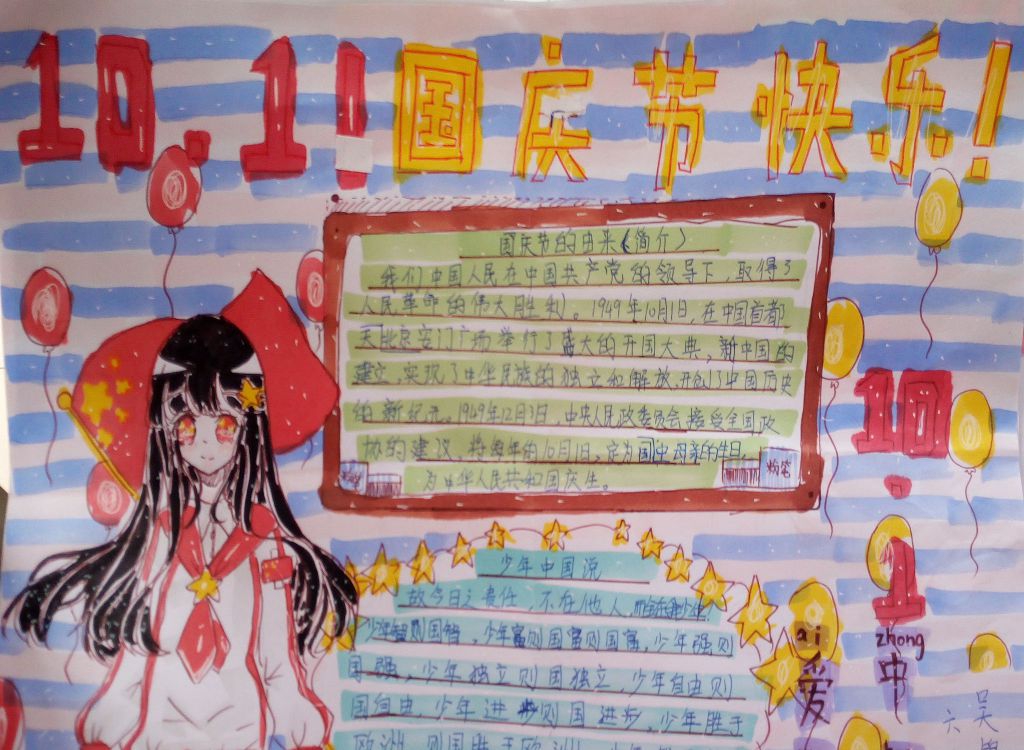 10.1!国庆节快乐!
国庆节的由来(简介)
我们中国人民在中国共产党的领导下,取得了
人民革命的伟大胜利。1949年10月1日,在中国首都
北京天安门广场举行了盛大的开国大典,新中国的
建立,实现了中华民族的独立和解放,开创了中国历史
的新纪元。1949年12月3日,中央人民政委员会接受全国政
协的建议,将每年的10月1日,定为国中母亲的生日,
为中华人民共和国庆生。
粉笔
少年中国说
故今日之责任,不在他人,而全在我少年.
少年智则国智,少年富则国富则国富,少年强则
国强,少年独立则国独立,少年自由则
国自由,少年进步则国进步,少年胜于
欧洲,则国胜于欧洲
10.1
ai zhong
爱中
六
吴